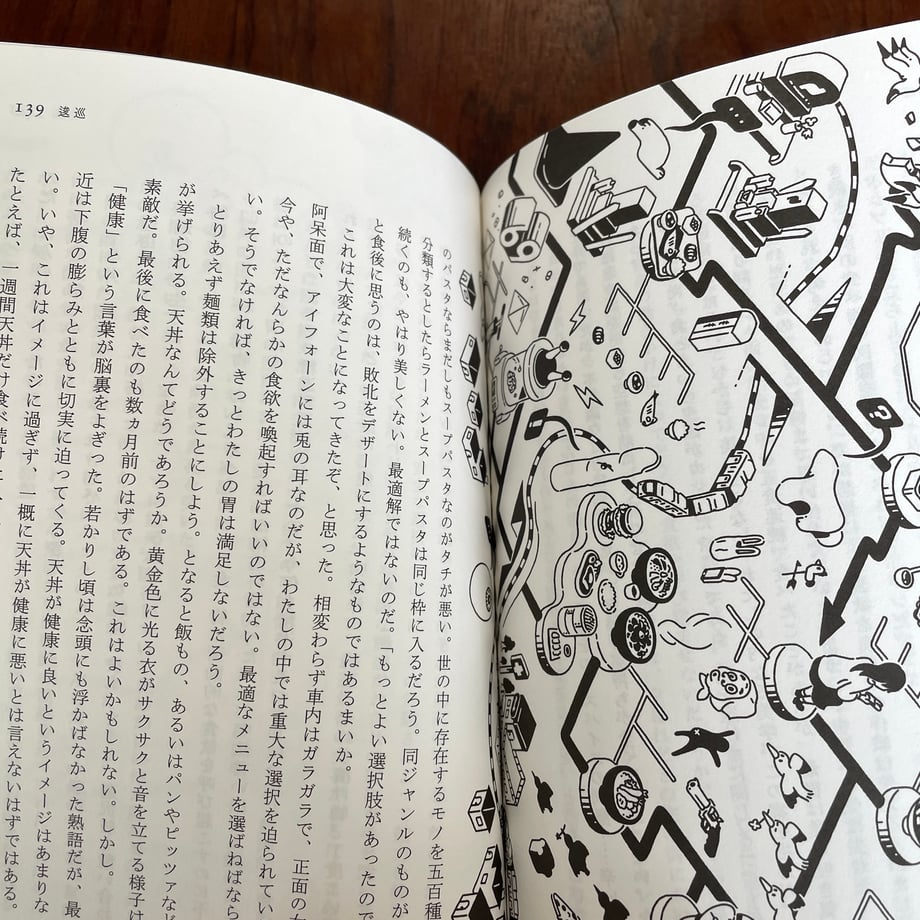 139 逡巡
のパスタならまだしもスープパスタなのがタチが悪い。世の中に存在するモノを五百種
分類するとしたらラーメンとスープパスタは同じ枠に入るだろう。同ジャンルのものが
続くのも、やはり美しくない。最適解ではないのだ。「もっとよい選択肢があったので
と食後に思うのは、敗北をデザートにするようなものではあるまいか。
これは大変なことになってきたぞ、と思った。相変わらず車内はガラガラで、正面の
阿呆面で、アイフォーンには兎の耳なのだが、わたしの中では重大な選択を迫られてい
今や、ただなんらかの食欲を喚起すればいいのではない。最適なメニューを選ばねばなら
い。そうでなければ、きっとわたしの胃は満足しないだろう。
とりあえず麺類は除外することにしよう。となると飯もの、あるいはパンやピッツァなど
が挙げられる。天丼なんてどうであろうか。黄金色に光る衣がサクサクと音を立てる様子は
素敵だ。最後に食べたのも数ヵ月前のはずである。これはよいかもしれない。しかし。
「健康」という言葉が脳裏をよぎった。若かりし頃は念頭にも浮かばなかった熟語だが、最
近は下腹の膨らみとともに切実に迫ってくる。天丼が健康に良いというイメージはあまりな
い。いや、これはイメージに過ぎず、一概に天丼が健康に悪いとは言えないはずではある。
たとえば、一週間天丼だけ食べ続けて、